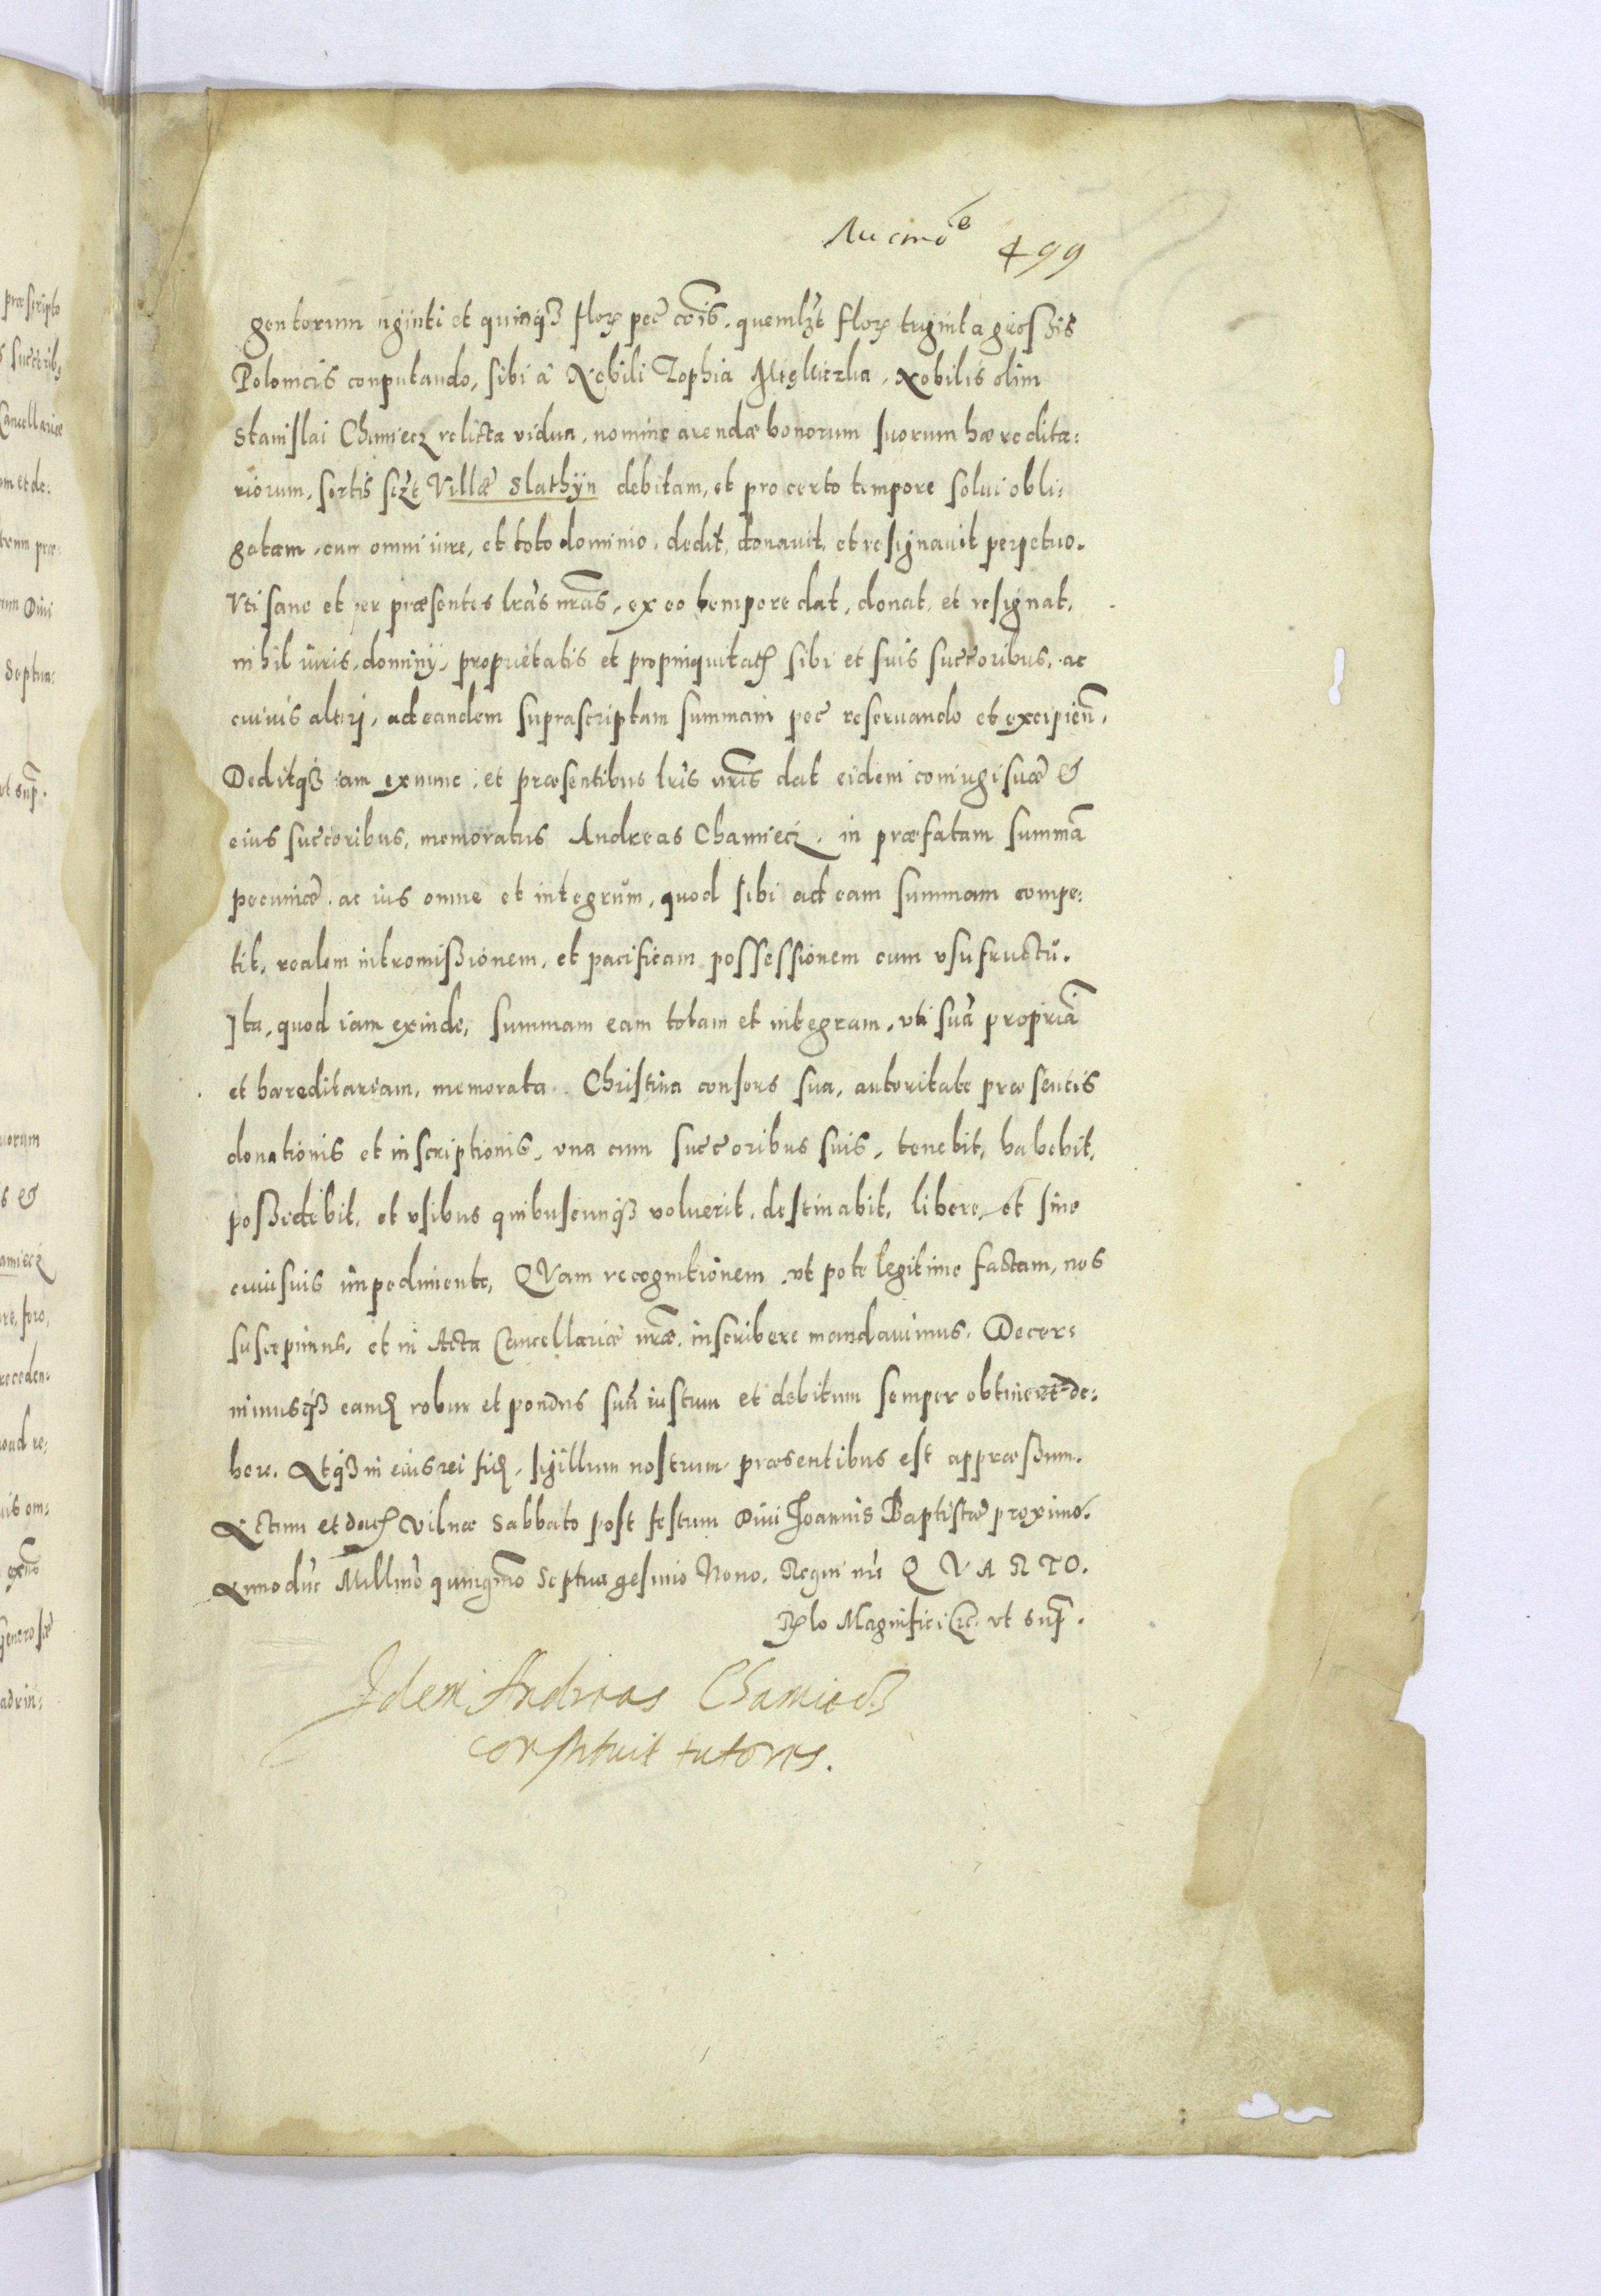 499
gentorum viginti et quinqȝ flor pec cois. quemlȝt flor triginta großis
Polonicis computando, sibi a Nobili Zophia Nobilis olim
Stanislai Chamiecz relicta vidua, nomine arendæ bonorum suorum hæredita:
riorum, sortis sczt Villæ Slathÿn debitam, et pro certo tempore solui obli:
gatam, cum omni iure, et toto dominio, dedit, donauit, et resignauit perpetuo.
Vti sane et per præsentes lras nras, ex eo tempore dat, donat, et resignat,
nihil iuris, dominÿ, proprietatis et propinquitatis sibi et suis succoribus, ac
cuiuis alteri, ad eandem suprascriptam summam pec reseruando et excipien.
Deditqȝ iam exnunc, et præsentibus lris nris dat eidem coniugi suæ &
eius succoribus, memoratus Andreas Chamiecz, in præfatam summā
pecuniæ, ac ius omne et integrum, quod sibi ad eam summam compe:
tit, realem intromißionem, et pacificam possessionem cum vsufructu.
Ita, quod iam exinde, summam eam totam et integram, vti suā propriā
et hæreditariam, memorata Christina consors sua, autoritate præsentis
donationis et inscriptionis, vna cum succoribus suis, tenebit, habebit,
poßidebit, et vsibus quibuscunqȝ voluerit, destinabit, libere, et sine
cuiusuis impedimento, QVam recognitionem, vt pote legitime factam, nos
suscepimus, et in Acta Cancellariæ nræ, inscribere mandauimus. Decer:
nimusqȝ eand robur et pondus suū iustum et debitum semper obtinere de:
bere. Atqȝ in eius rei fid, sigillum nostrum præsentibus est appræßum.
Actum et dat Vilnæ Sabbato post festum Diui Joannis Baptistæ proximo.
Anno dni Millmo quingmo Septuagesimo Nono. Regni nri QVARTO.
Rlo Magnifici etc. vt sup.
Idem Andreas Chamiecz
constituit tutores.